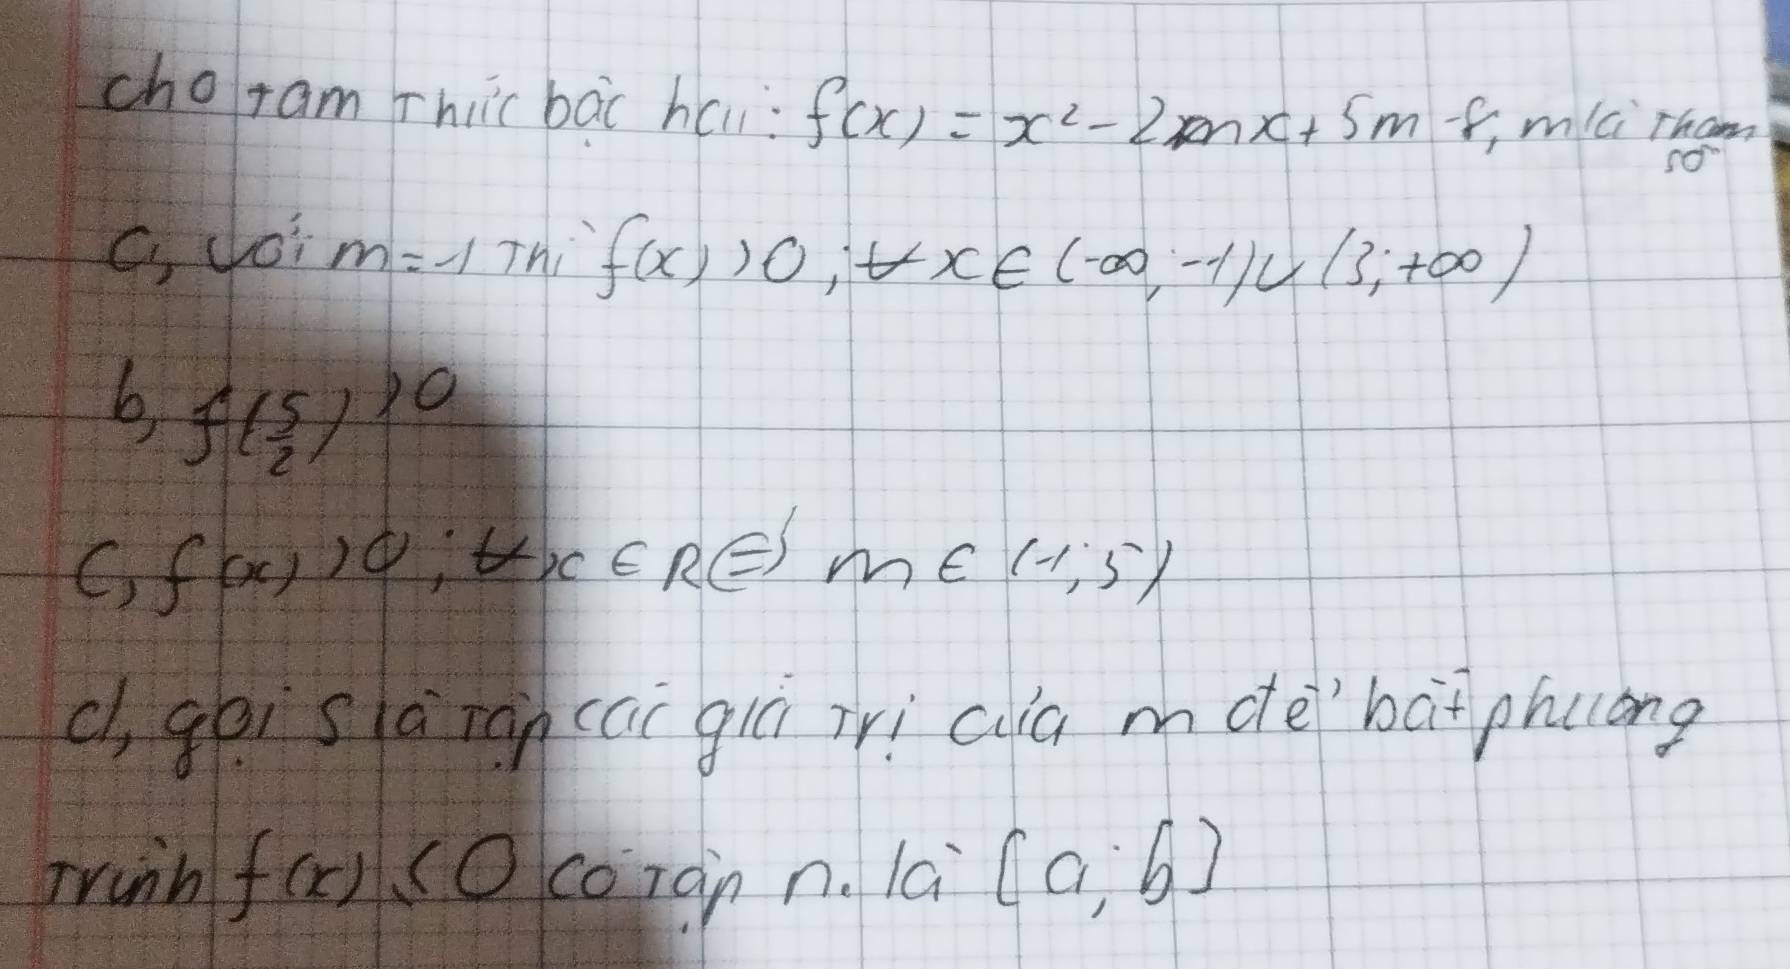 cho tam thức bậc hai: f(x) = x² - 2mx + 5m - 8, m là tham số
a, với m = -1 thì f(x) > 0; ∀x ∈ (-∞; -1) ∪ (3; +∞)
b, f(5/2) > 0
c, f(x) > 0; ∀x ∈ R ⇔ m ∈ (-1; 5)
d, gọi S là tập các giá trị của m để bất phương
trình f(x) ≤ 0 có tập n. là [a; b]